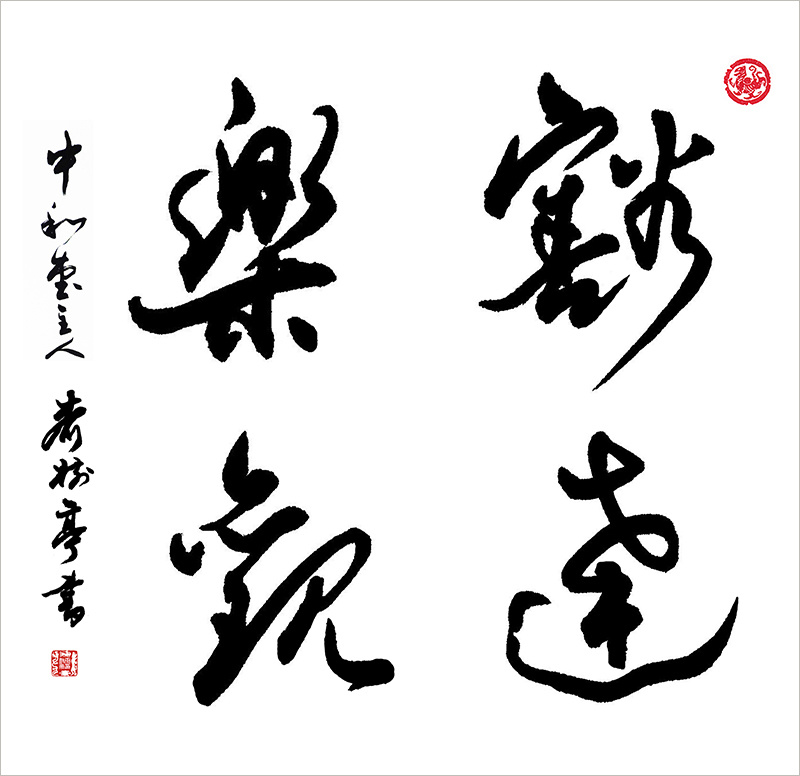 豁達
樂觀
中和堂主人 肖樹亭書